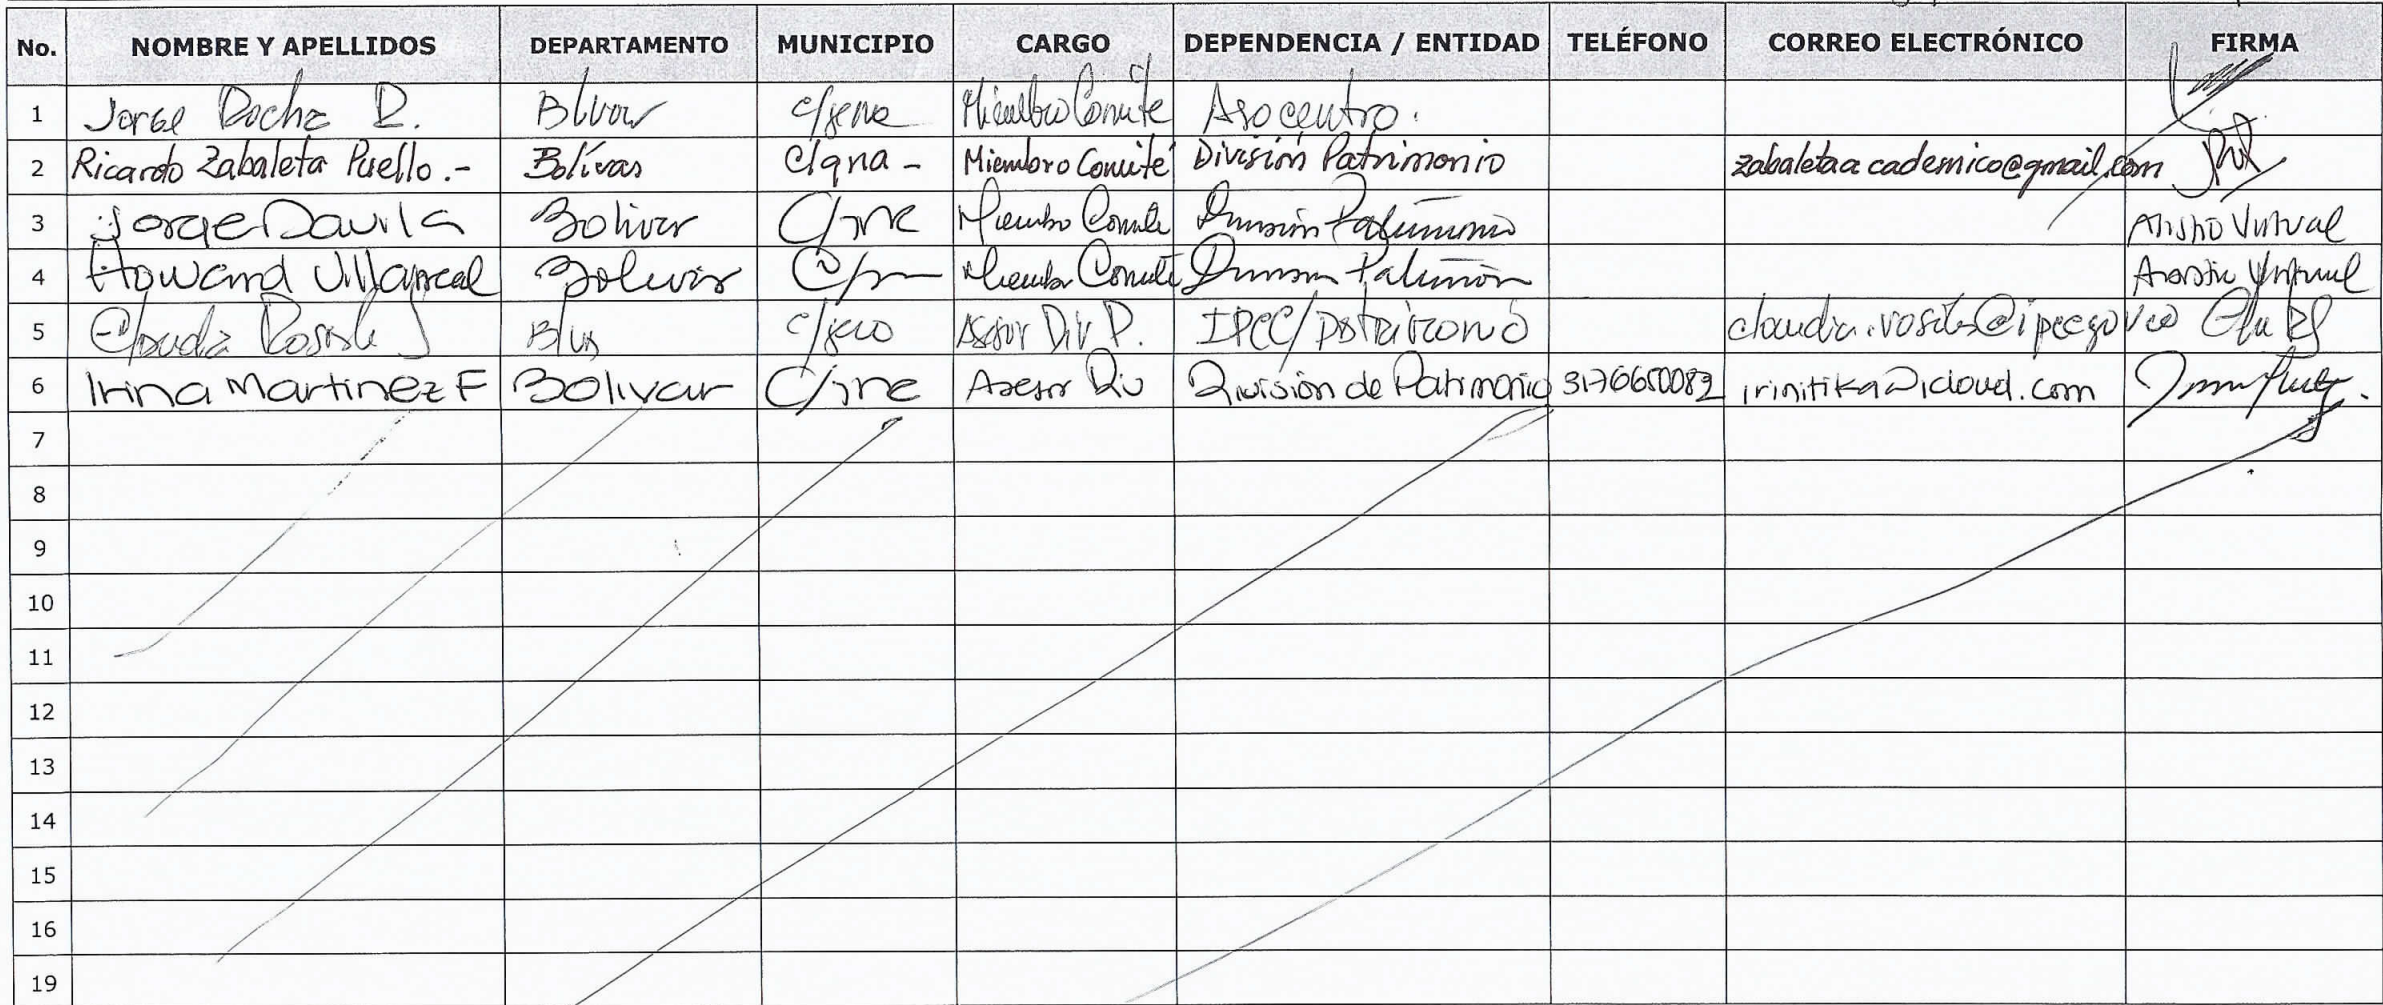 No. NOMBRE Y APELLIDOS DEPARTAMENTO MUNICIPIO CARGO DEPENDENCIA / ENTIDAD TELÉFONO CORREO ELECTRÓNICO FIRMA
1 Jorge Rocha R. Blvar c/gena Miembro Comité Asocentro.
2 Ricardo Zabaleta Puello.- Bolívar c/gna - Miembro Comité División Patrimonio zabaletaacademico@gmail.com
3 Jorge Davila Bolivar C/ Miembro Comite División Patrimonio Virtual
4 Howard Villarreal Bolivar Miembro Comité
5 Claudia IPCC/Patrimonio
6 Irina Martinez F Bolivar Asesor Div División de Patrimonio 3176650082 irinitika@icloud.com
7
8
9
10
11
12
13
14
15
16
19